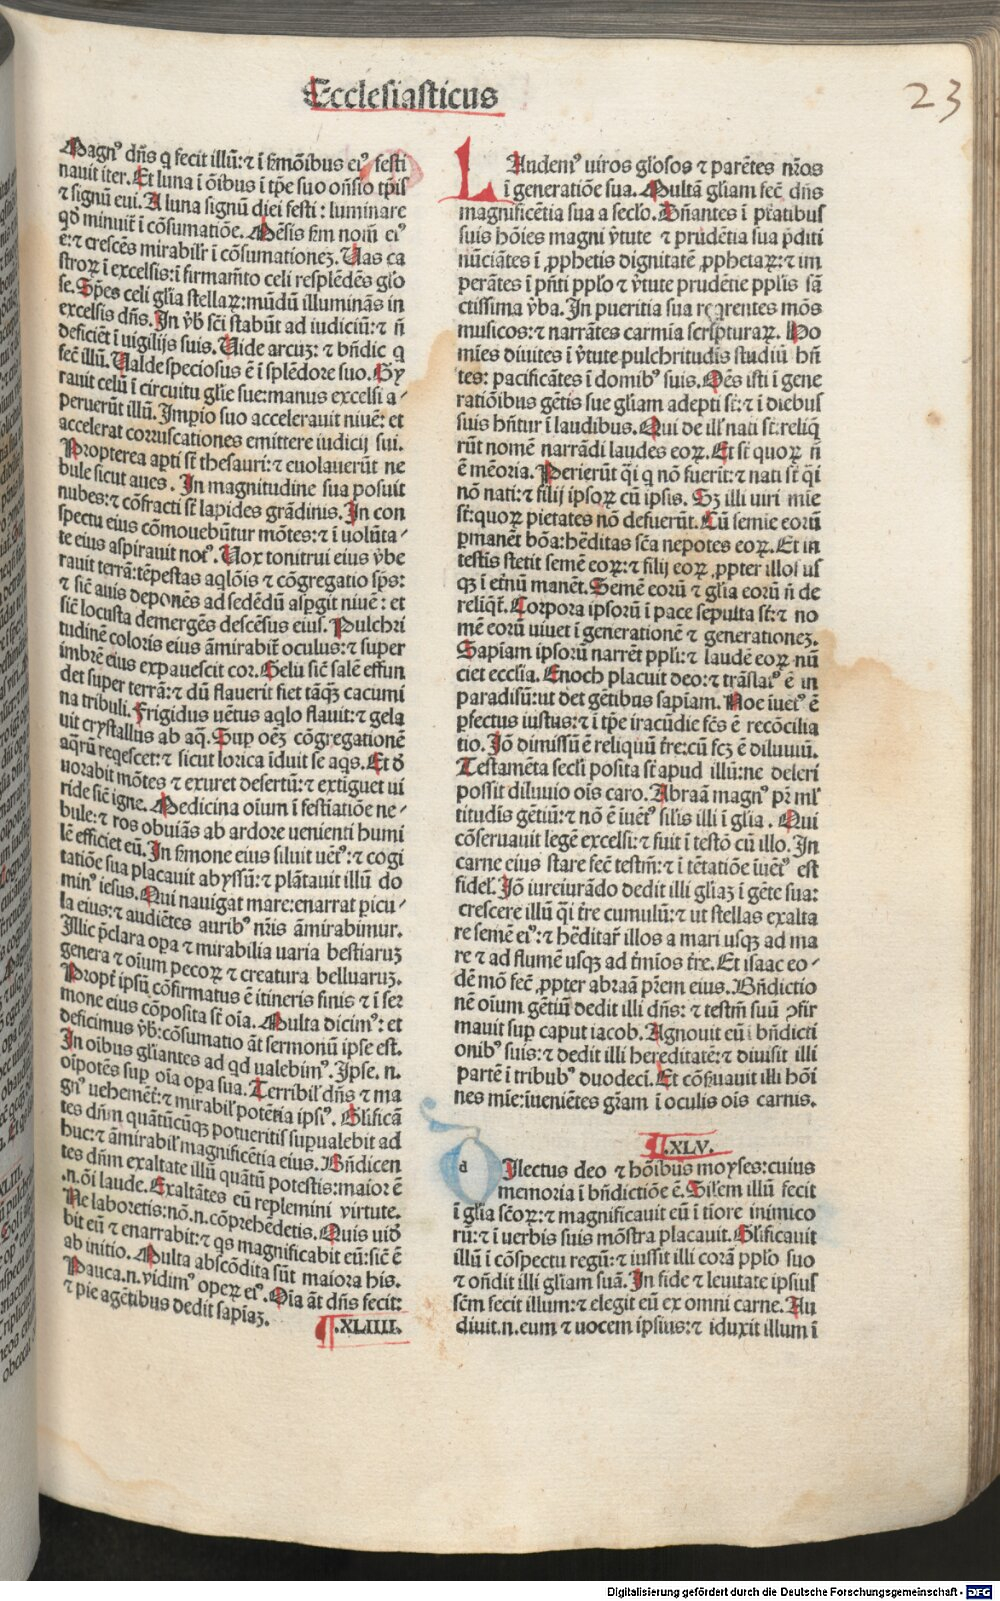 Ecclesiasticus
23
Magnꝰ dn̄s q̄ fecit illū: ⁊ ī ẜmōibus eiꝰ festi
nauit iter. Et luna ī ōibus ī tp̄e suo on̄sio tp̄is
⁊ signū eui. A luna signū diei festi: luminare
qd̄ minuit̄ ī cōsumatiōe. Mēsis ẜm nom̄ eiꝰ
ē: ⁊ crescēs mirabilr̄ ī cōsumationeꝫ. Uas ca
stroꝝ ī excelsis: ī firmamēto celi resplēdēs gl̄o
se. Sp̄es celi gl̄ia stellaꝝ: mūdū illuminās in
excelsis dn̄s. In v̄b̄ sc̄i stabūt ad iudiciū: ⁊ n̄
deficiēt ī uigilijs suis. Uide arcuꝫ: ⁊ bn̄dic q̄
fec̄ illū. Ualde speciosus ē ī splēdore suo. Gy
rauit celū ī circuitu gl̄ie sue: manus excelsi a⸗
peruerūt illū. Imp̄io suo accelerauit niuē: et
accelerat corruscationes emittere iudicij sui.
Propterea ap̄ti st̄ thesauri: ⁊ euolauerūt ne
bule sicut aues. In magnitudine sua posuit
nubes: ⁊ cōfracti st̄ lapides grādinis. In con
spectu eius cōmouebūtur mōtes: ⁊ ī uolūta⸗
te eius aspirauit notꝰ. Uox tonitrui eius v̄be
rauit terrā: tēpestas aqlōis ⁊ cōgregatio sp̄s:
⁊ sic̄ auis deponēs ad sedēdū asp̄git niuē: et
sic̄ locusta demergēs descēsus eius. Pulchri
tudinē coloris eius āmirabit̄ oculus: ⁊ super
imbrē eius expauescit cor. Gelu sic̄ salē effun
det super terrā: ⁊ dū flauerit fiet tāqꝫ cacumi
na tribuli. Frigidus uētus aqlo flauit: ⁊ gela
uit crystallus ab aq̄. Sup̄ oēꝫ cōgregationē
aq̄rū req̄escet: ⁊ sicut lorica iduit se aq̄s. Et d̄
uorabit mōtes ⁊ exuret desertū: ⁊ extiguet ui
ride sic̄ igne. Medicina oīum ī festīatiōe ne⸗
bule: ⁊ ros obuiās ab ardore uenienti humi
lē efficiet eū. In ẜmone eius siluit uētꝰ: ⁊ cogi
tatiōe sua placauit abyssū: ⁊ plātauit illū do
minꝰ iesus. Qui nauigat mare: enarrat p̄icu⸗
la eius: ⁊ audiētes auribꝰ nr̄is āmirabimur.
Illic p̄clara op̄a ⁊ mirabilia uaria bestiaruꝫ
genera ⁊ oīum pecoꝝ ⁊ creatura belluaruꝫ.
Propt̄ ipsū cōfirmatus ē itineris finis ⁊ ī ser
mone eius cōposita st̄ oīa. Multa dicimꝰ: et
deficimus v̄b̄: cōsumatio āt sermonū ipse est.
In oibus gl̄iantes ad qd ualebimꝰ. Ipse .n.
oīpotēs sup̄ oīa op̄a sua. Terribil̄ dn̄s ⁊ ma
gnꝰ uehemēt̄: ⁊ mirabil̄ potētia ipsiꝰ. Gl̄ificā
tes dn̄m quātūcūqꝫ potueritis supualebit ad
huc: ⁊ āmirabil̄ magnificētia eius. Bn̄dicen
tes dn̄m exaltate illū quātū potestis: maior ē
.n. ōi laude. Exaltātes eū replemini virtute.
Ne laboretis: nō .n. cōprehēdetis. Quis uid̄
bit eū ⁊ enarrabit: ⁊ q̄s magnificabit eū: sic̄ ē
ab initio. Multa abscōdita sūt maiora his.
Pauca .n. vidimꝰ opeꝝ eiꝰ. Oīa āt dn̄s fecit:
⁊ pie agētibus dedit sapiaꝫ.
¶.XLIIII.
LAudemꝰ uiros gl̄osos ⁊ parētes nr̄os
ī generatiōe sua. Multā gl̄iam fec̄ dn̄s
magnificētia sua a secl̄o. Dn̄antes ī p̄tatibus
suis hōies magni v̄tute ⁊ prudētia sua p̄diti
nūciātes ī ꝓphetis dignitatē ꝓphetaꝝ: ⁊ im
perātes ī pn̄ti pp̄lo ⁊ v̄tute prudētie pp̄lis sā
ctissima v̄ba. In pueritia sua req̄rentes mōs
musicos: ⁊ narrātes carmīa scripturaꝝ. Ho
mīes diuites ī v̄tute pulchritudis studiū hn̄
tes: pacificātes ī domibꝰ suis. Oēs isti ī gene
ratiōibus gētis sue gl̄iam adepti st̄: ⁊ ī diebus
suis hn̄tur ī laudibus. Qui de ill̄ nati st̄: reliq̄
rūt nomē narrādi laudes eoꝝ. Et st̄ quoꝝ n̄
ē mēoria. Perierūt q̄i q nō fuerīt: ⁊ nati st̄ q̄i
nō nati: ⁊ filij ipsoꝝ cū ipsis. Sꝫ illi uiri mīe
st̄: quoꝝ pietates nō defuerūt. Cū semie eorū
ꝑmanēt bōa: hēditas sc̄a nepotes eoꝝ. Et in
testīs stetit semē eoꝝ: ⁊ filij eoꝝ ꝓpter illos us
qꝫ ī et̄nū manēt. Semē eorū ⁊ gl̄ia eorū n̄ de
relīq̄t̄. Corpora ipsorū ī pace sepulta st̄: ⁊ no
mē eorū uiuet ī generationē ⁊ generationeꝫ.
Sapīam ipsorū narrēt pp̄li: ⁊ laudē eoꝝ nū
ciet eccl̄ia. Enoch placuit deo: ⁊ trāslatꝰ ē in
paradisū: ut det gētibus sapīam. Noe īuētꝰ ē
ꝑfectus iustus: ⁊ ī tp̄e iracūdie fc̄s ē recōcilia
tio. Iō dimissū ē reliquū tr̄e: cū fcꝫ ē diluuiū.
Testamēta secl̄i posita st̄ apud illū: ne deleri
possit diluuio oīs caro. Abraā magnꝰ pr̄ ml̄
titudis gētiū: ⁊ nō ē īuētꝰ sil̄is illi ī gl̄ia. Qui
cōseruauit legē excelsi: ⁊ fuit ī testō cū illo. In
carne eius stare fec̄ testm̄: ⁊ ī tētatiōe īuētꝰ est
fidel̄. Iō iureiurādo dedit illi gl̄iaꝫ ī gēte sua:
crescere illū q̄i tr̄e cumulū: ⁊ ut stellas exalta
re semē eiꝰ: ⁊ hēditar̄ illos a mari usqꝫ ad ma
re ⁊ ad flumē usqꝫ ad t̄mīos tr̄e. Et isaac eo⸗
dē mō fec̄ ꝓpter abraā pr̄em eius. Bn̄dictio
nē oīum gētiū dedit illi dn̄s: ⁊ testm̄ suū ↄfir
mauit sup̄ caput iacob. Agnouit eū ī bn̄dicti
onibꝰ suis: ⁊ dedit illi hereditatē: ⁊ diuisit illi
partē ī tribubꝰ duodeci. Et cōẜuauit illi hōī
nes mīe: īueniētes gr̄am ī oculis oīs carnis.
¶.XLV.
dIlectus deo ⁊ hōībus moyses: cuius
memoria ī bn̄dictiōe ē. Sil̄em illū fecit
ī gl̄ia sc̄oꝝ: ⁊ magnificauit eū ī tiore inimico
rū: ⁊ ī uerbis suis mōstra placauit. Gl̄ificauit
illū ī cōspectu regū: ⁊ iussit illi corā pp̄lo suo
⁊ on̄dit illi gl̄iam suā. In fide ⁊ leuitate ipsius
sc̄m fecit illum: ⁊ elegit eū ex omni carne. Au
diuit .n. eum ⁊ uocem ipsius: ⁊ iduxit illum ī
Digitalisierung gefördert durch die Deutsche Forschungsgemeinschaft - DFG